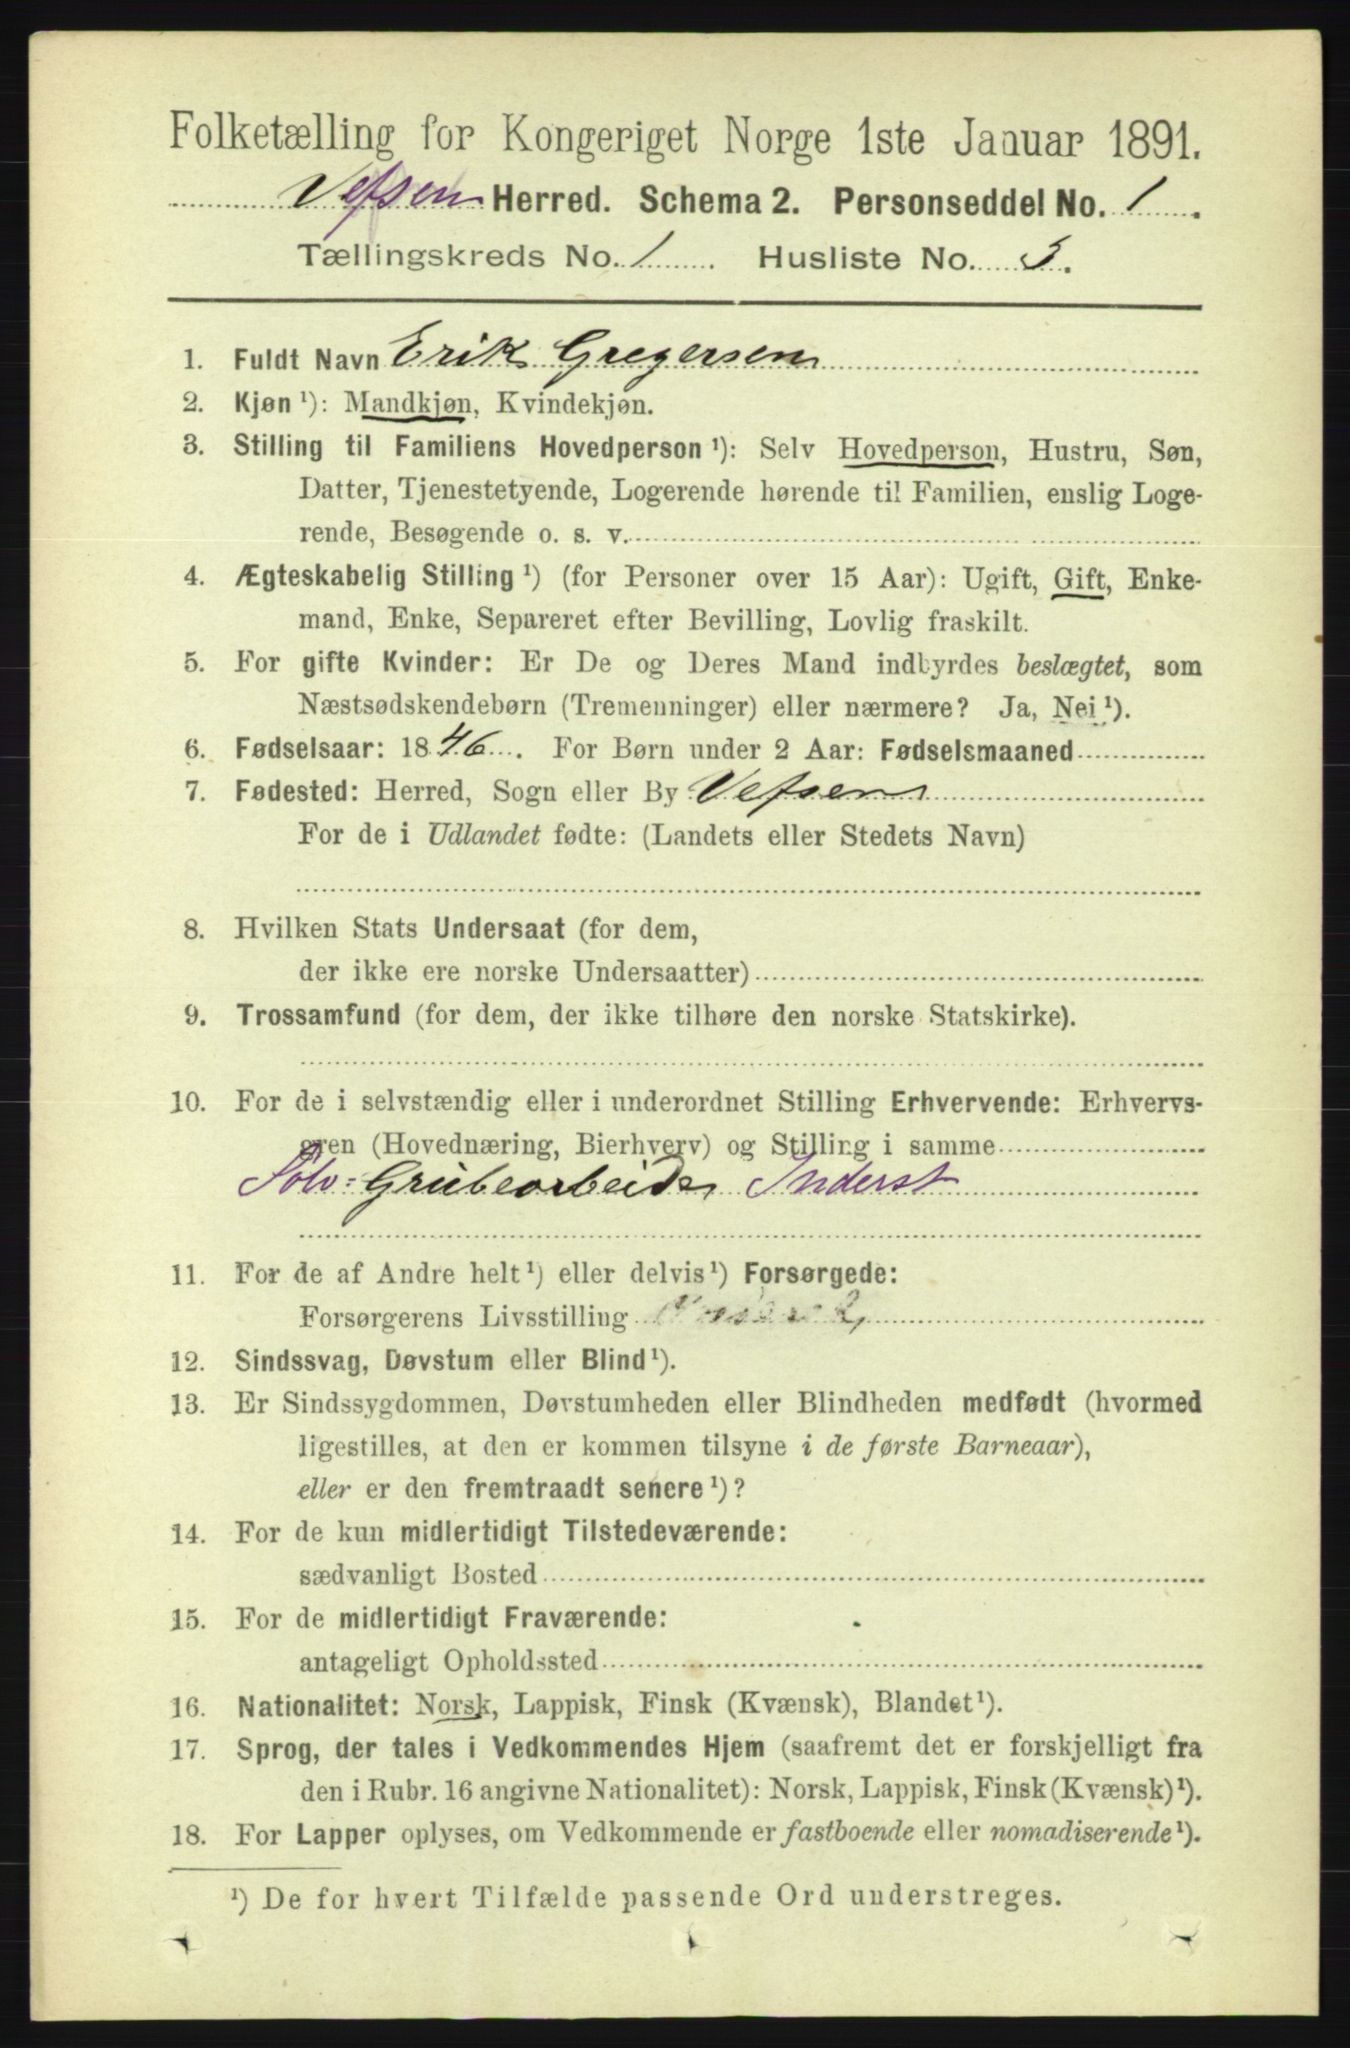 Folketælling for Kongeriget Norge 1ste Januar 1891.
Vefsen Herred. Schema 2. Personseddel No. 1.
Tællingskreds No. 1 Husliste No. 3.
1. Fuldt Navn Erik Gregersen
2. Kjøn ¹): Mandkjøn, Kvindekjøn.
3. Stilling til Familiens Hovedperson ¹): Selv Hovedperson, Hustru, Søn,
Datter, Tjenestetyende, Logerende hørende til Familien, enslig Loge-
rende, Besøgende o. s. v.
4. Ægteskabelig Stilling ¹) (for Personer over 15 Aar): Ugift, Gift, Enke-
mand, Enke, Separeret efter Bevilling, Lovlig fraskilt.
5. For gifte Kvinder: Er De og Deres Mand indbyrdes beslægtet, som
Næstsødskendebørn (Tremenninger) eller nærmere? Ja, Nei ¹).
6. Fødselsaar: 1846. For Børn under 2 Aar: Fødselsmaaned
7. Fødested: Herred, Sogn eller By Vefsen
For de i Udlandet fødte: (Landets eller Stedets Navn)
8. Hvilken Stats Undersaat (for dem,
der ikke ere norske Undersaatter)
9. Trossamfund (for dem, der ikke tilhøre den norske Statskirke).
10. For de i selvstændig eller i underordnet Stilling Erhvervende: Erhvervs-
gren (Hovednæring, Bierhverv) og Stilling i samme
Sølv=Grubearbeider Inderst
11. For de af Andre helt ¹) eller delvis ¹) Forsørgede:
Forsørgerens Livsstilling
12. Sindssvag, Døvstum eller Blind ¹).
13. Er Sindssygdommen, Døvstumheden eller Blindheden medfødt (hvormed
ligestilles, at den er kommen tilsyne i de første Barneaar),
eller er den fremtraadt senere ¹)?
14. For de kun midlertidigt Tilstedeværende:
sædvanligt Bosted
15. For de midlertidigt Fraværende:
antageligt Opholdssted
16. Nationalitet: Norsk, Lappisk, Finsk (Kvænsk), Blandet ¹).
17. Sprog, der tales i Vedkommendes Hjem (saafremt det er forskjelligt fra
den i Rubr. 16 angivne Nationalitet): Norsk, Lappisk, Finsk (Kvænsk) ¹).
18. For Lapper oplyses, om Vedkommende er fastboende eller nomadiserende ¹).
¹) De for hvert Tilfælde passende Ord understreges.